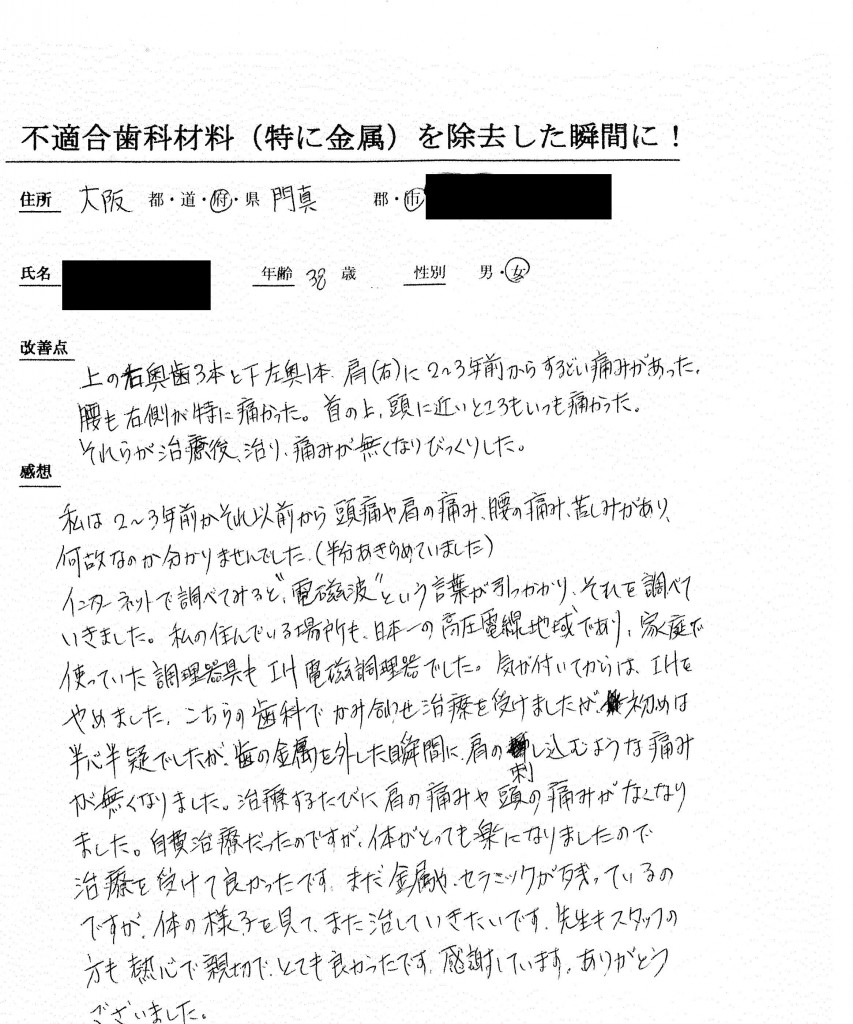 不適合歯科材料（特に金属）を除去した瞬間に！
住所 大阪 都・道・府・県 門真 郡・市
氏名 年齢 38 歳 性別 男・女
改善点
上の右奥歯3本と下左奥1本、肩(右)に2～3年前からするどい痛みがあった。
腰も右側が特に痛かった。首の上、頭に近いところもいつも痛かった。
それらが治療後、治り、痛みが無くなりびっくりした。
感想
私は2～3年前かそれ以前から頭痛や肩の痛み、腰の痛み、苦しみがあり、
何故なのか分かりませんでした。(半分あきらめていました)
インターネットで調べてみると、“電磁波”という言葉が引っかかり、それを調べて
いきました。私の住んでいる場所も、日本一の高圧電線地域であり、家庭で
使っていた調理器具もIH電磁調理器でした。気が付いてからは、IHを
やめました。こちらの歯科でかみ合わせ治療を受けましたが、初めは
半心半疑でしたが、歯の金属を外した瞬間に、肩の刺し込むような痛み
が無くなりました。治療するたびに肩の痛みや頭の痛みがなくなり
ました。自費治療だったのですが、体がとっても楽になりましたので
治療を受けて良かったです。まだ金属や、セラミックが残っているの
ですが、体の様子を見て、また治していきたいです。先生もスタッフの
方も熱心で親切で、とても良かったです。感謝しています。ありがとう
ございました。